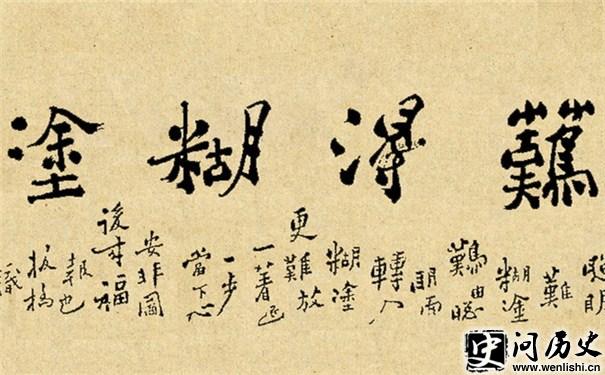 難得糊塗
聰明
難
糊塗
難由聰
明而
轉入
糊塗
更難放
一著退
一步
當下心
安非圖
後来福
報也
板橋
識
问历史
www.wenlishi.cn